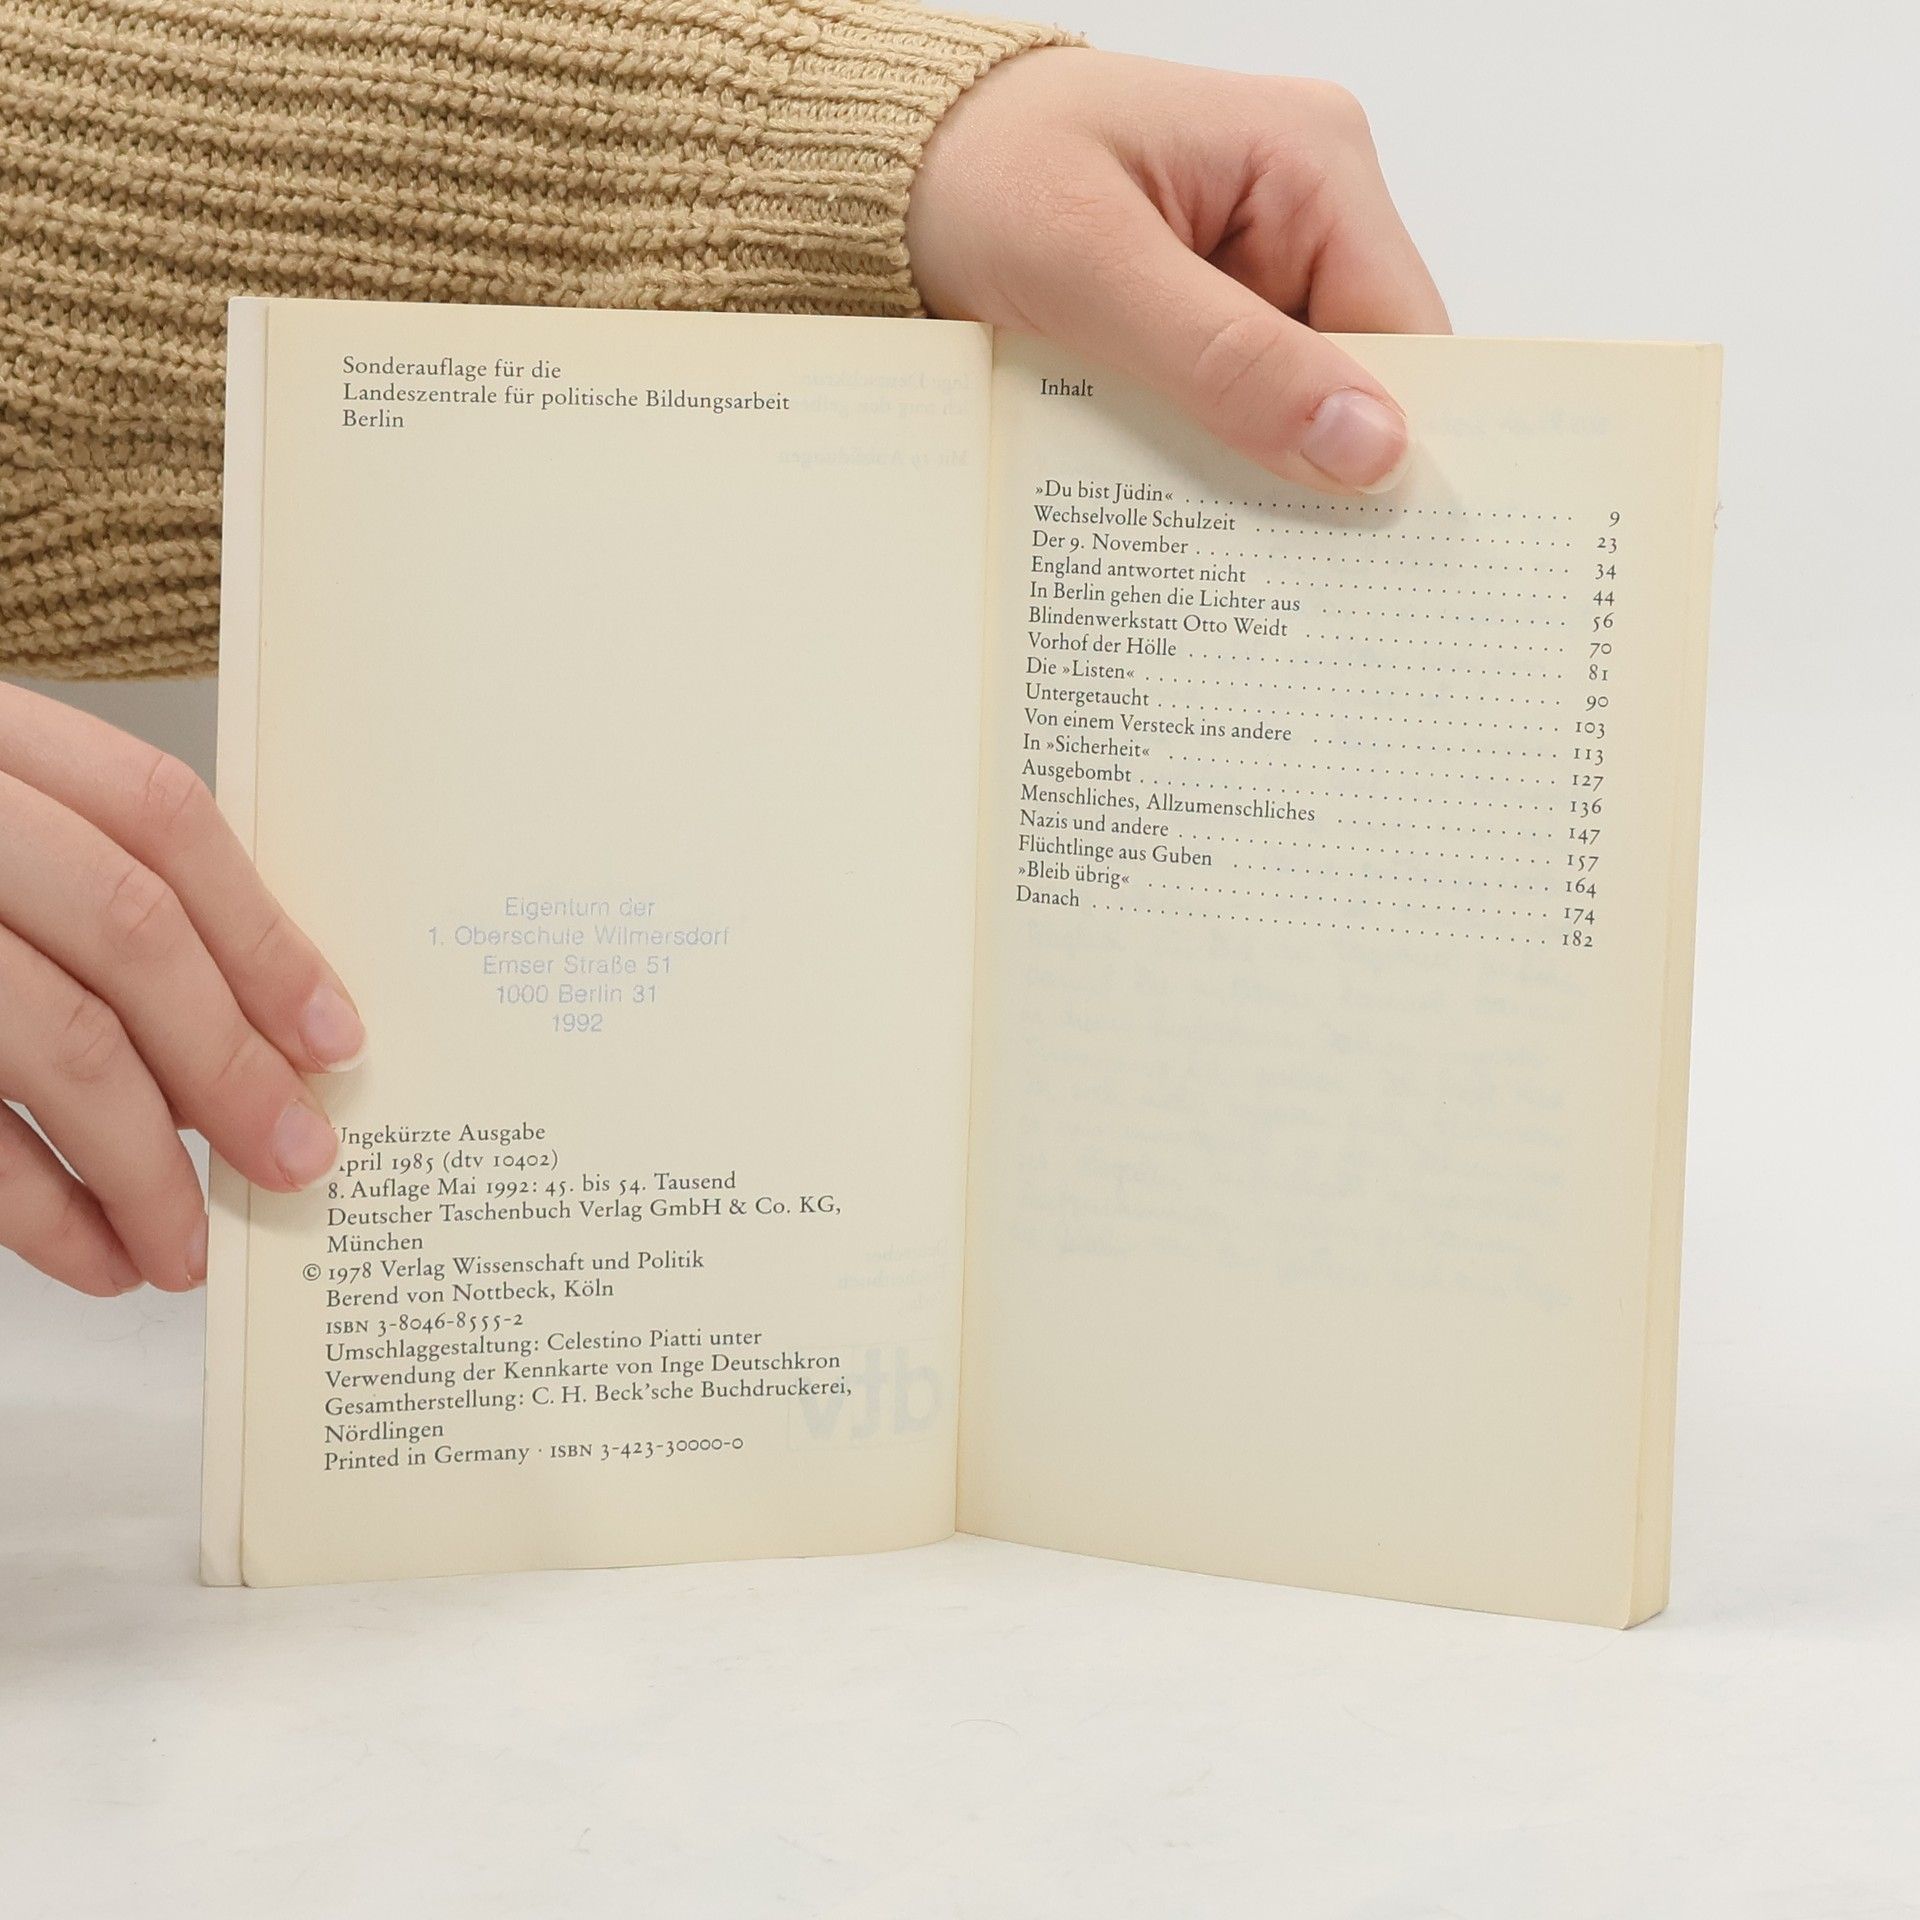 Sonderauflage für die
Landeszentrale für politische Bildungsarbeit
Berlin
Eigentum der
1. Oberschule Wilmersdorf
Emser Straße 51
1000 Berlin 31
1992
Ungekürzte Ausgabe
April 1985 (dtv 10402)
8. Auflage Mai 1992: 45. bis 54. Tausend
Deutscher Taschenbuch Verlag GmbH & Co. KG,
München
© 1978 Verlag Wissenschaft und Politik
Berend von Nottbeck, Köln
ISBN 3-8046-8555-2
Umschlaggestaltung: Celestino Piatti unter
Verwendung der Kennkarte von Inge Deutschkron
Gesamtherstellung: C. H. Beck'sche Buchdruckerei,
Nördlingen
Printed in Germany · ISBN 3-423-30000-0
Inhalt
»Du bist Jüdin« . . . . . . . . . . 9
Wechselvolle Schulzeit . . . . . . . . . . 23
Der 9. November . . . . . . . . . . 34
England antwortet nicht . . . . . . . . . . 44
In Berlin gehen die Lichter aus . . . . . . . . . . 56
Blindenwerkstatt Otto Weidt . . . . . . . . . . 70
Vorhof der Hölle . . . . . . . . . . 81
Die »Listen« . . . . . . . . . . 90
Untergetaucht . . . . . . . . . . 103
Von einem Versteck ins andere . . . . . . . . . . 113
In »Sicherheit« . . . . . . . . . . 127
Ausgebombt . . . . . . . . . . 136
Menschliches, Allzumenschliches . . . . . . . . . . 147
Nazis und andere . . . . . . . . . . 157
Flüchtlinge aus Guben . . . . . . . . . . 164
»Bleib übrig« . . . . . . . . . . 174
Danach . . . . . . . . . . 182